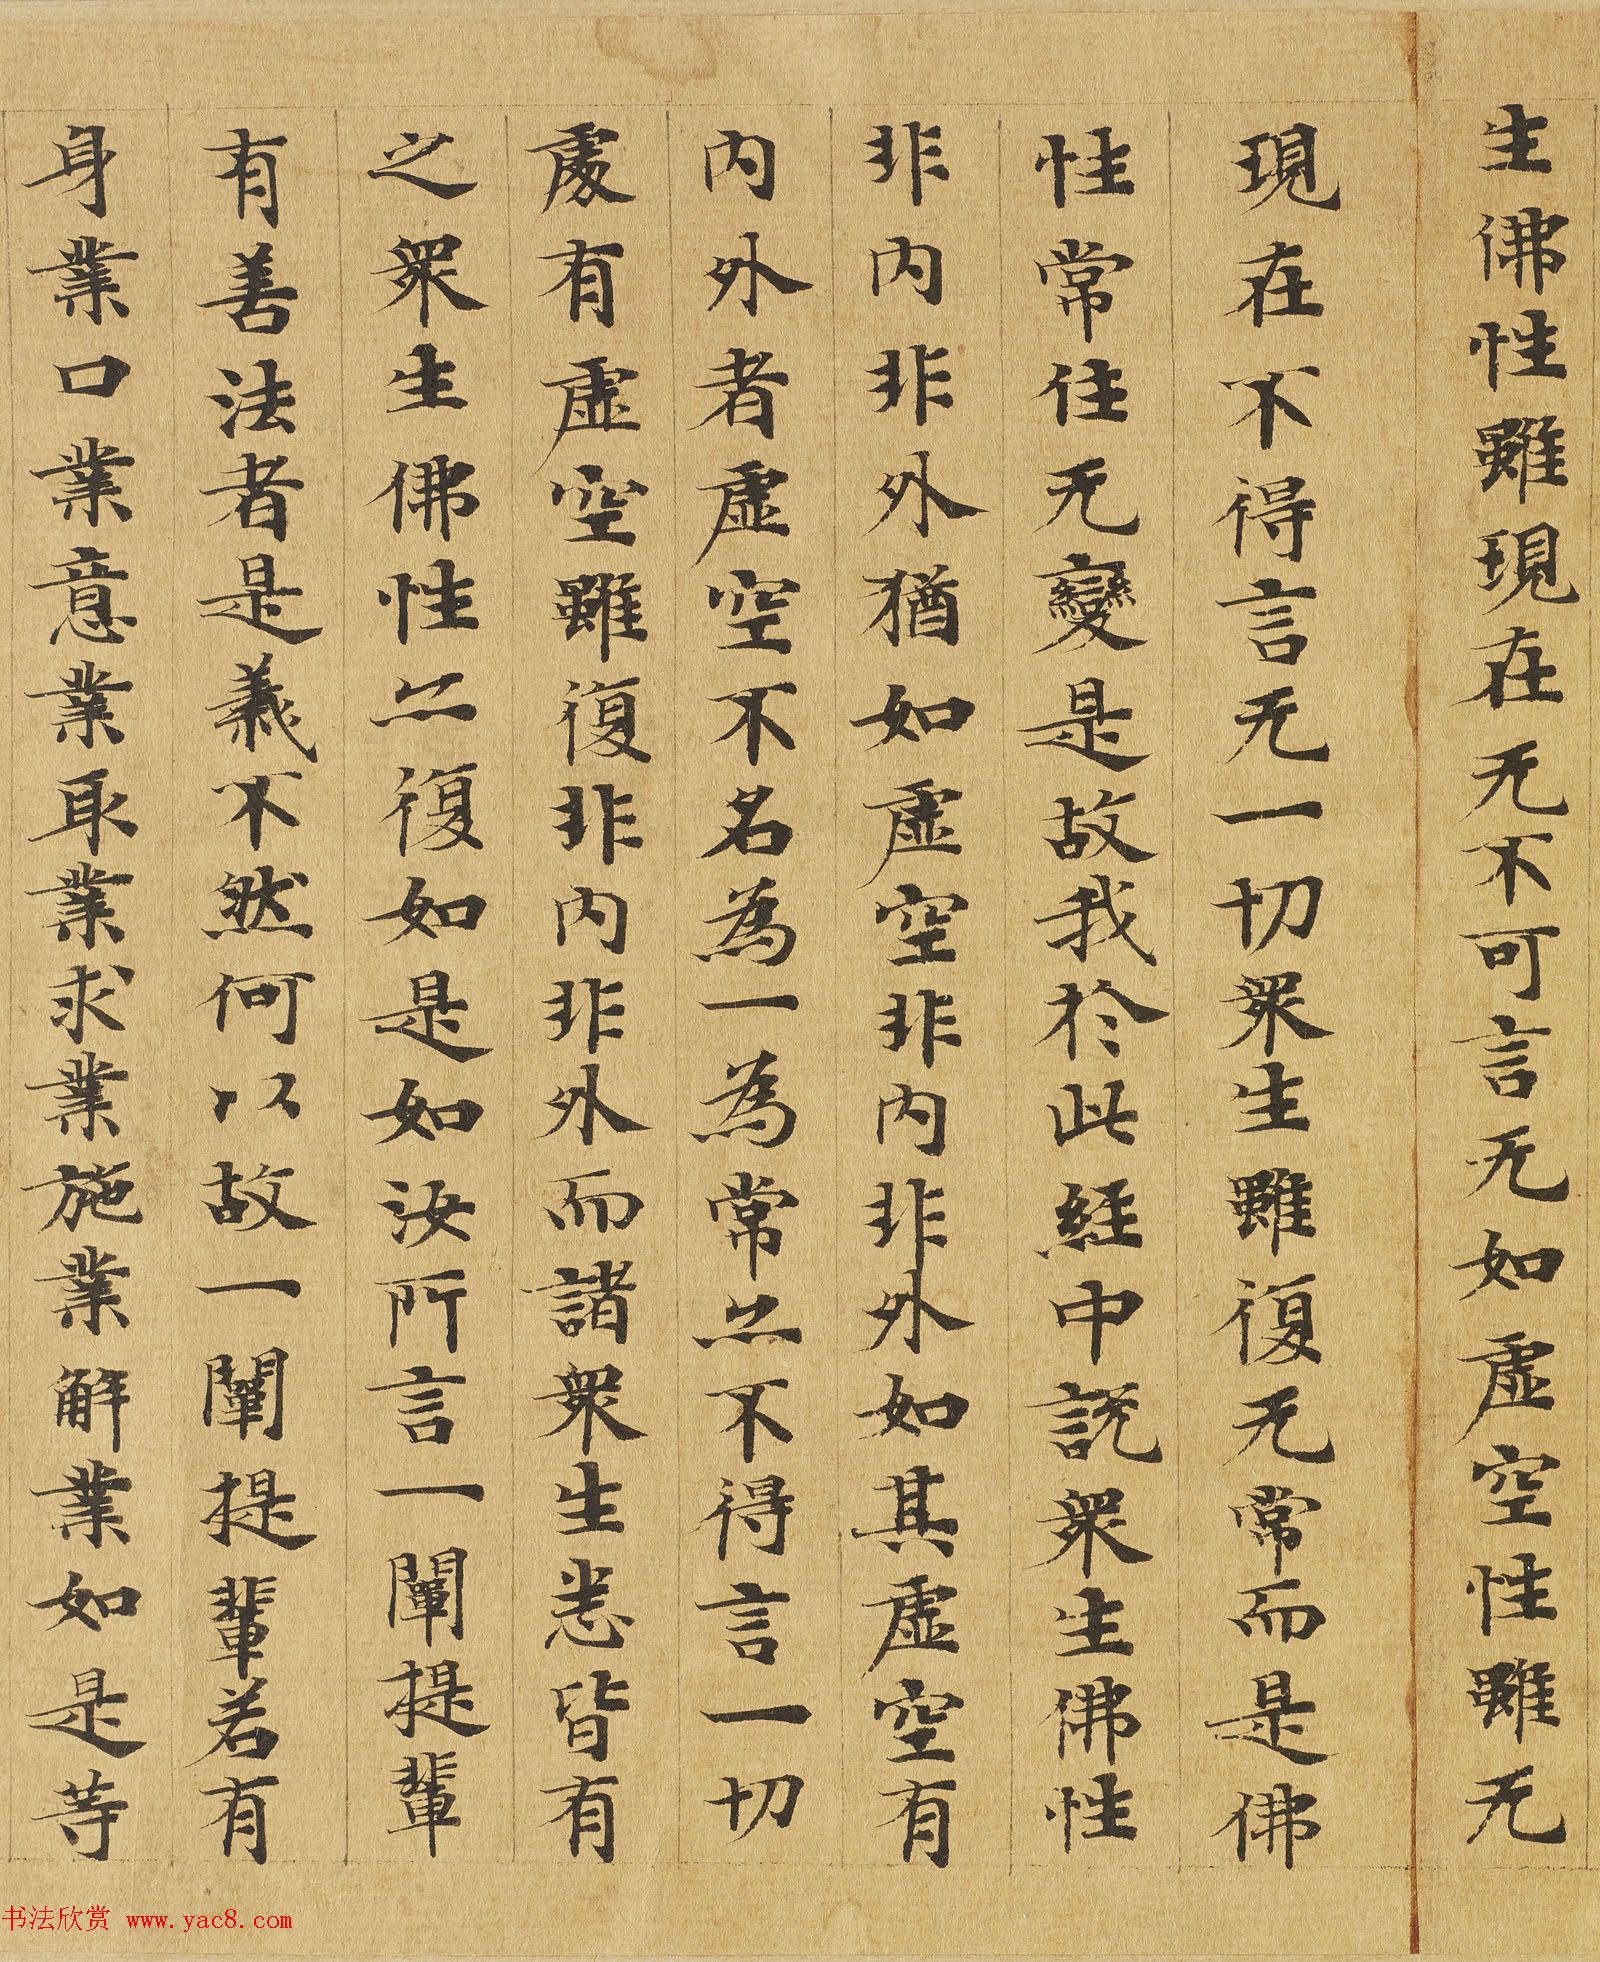 生佛性雖現在无不可言无如虛空性雖无
現在不得言无一切眾生雖復无常而是佛
性常住无變是故我於此經中說眾生佛性
非內非外猶如虛空非內非外如其虛空有
內外者虛空不名為一為常亦不得言一切
處有虛空雖復非內非外而諸眾生悉皆有
之眾生佛性亦復如是如汝所言一闡提輩
有善法者是義不然何以故一闡提輩若有
身業口業意業取業求業施業解業如是等
书法欣赏 www.yac8.com